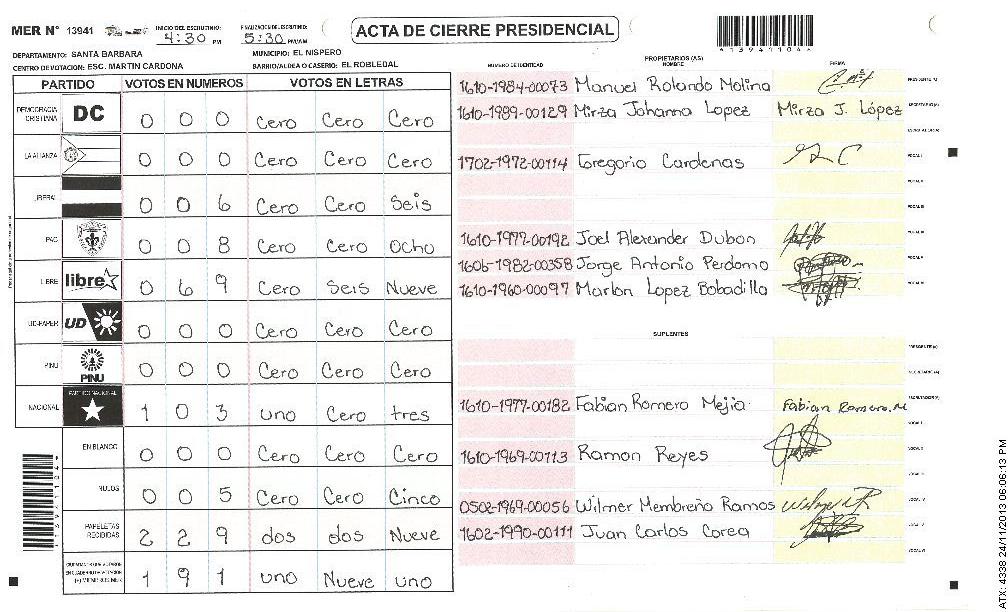 MER N° 13941
INICIO DEL ESCRUTINIO: 4:30 PM
FINALIZACION DEL ESCRUTINIO: 5:30 PM/AM
ACTA DE CIERRE PRESIDENCIAL
DEPARTAMENTO: SANTA BARBARA
MUNICIPIO: EL NISPERO
CENTRO DE VOTACION: ESC. MARTIN CARDONA
BARRIO/ALDEA O CASERIO: EL ROBLEDAL
PARTIDO VOTOS EN NUMEROS VOTOS EN LETRAS
DEMOCRACIA CRISTIANA DC 0 0 0 Cero Cero Cero
LA ALIANZA 0 0 0 Cero Cero Cero
LIBERAL 0 0 6 Cero Cero Seis
PAC 0 0 8 Cero Cero Ocho
LIBRE libre 0 6 9 Cero Seis Nueve
UD-FAPER UD 0 0 0 Cero Cero Cero
PINU PINU 0 0 0 Cero Cero Cero
NACIONAL PARTIDO NACIONAL 1 0 3 uno Cero tres
EN BLANCO 0 0 0 Cero Cero Cero
NULOS 0 0 5 Cero Cero Cinco
PAPELETAS RECIBIDAS 2 2 9 dos dos Nueve
1 9 1 uno Nueve uno
PROPIETARIOS (AS)
NUMERO DE IDENTIDAD NOMBRE FIRMA
1610-1984-00073 Manuel Rolando Molina
1610-1989-00129 Mirza Johanna Lopez Mirza J. López
1702-1972-00114 Gregorio Cardenas
1610-1977-00192 Joel Alexander Dubon
1606-1982-00358 Jorge Antonio Perdomo
1610-1960-00097 Marlon Lopez Bobadilla
SUPLENTES
1610-1977-00182 Fabian Romero Mejia Fabian Romero.M
1610-1969-00113 Ramon Reyes
0502-1969-00056 Wilmer Membreño Ramos
1602-1990-00111 Juan Carlos Corea
ATX: 4338 24/11/2013 06:06:13 PM